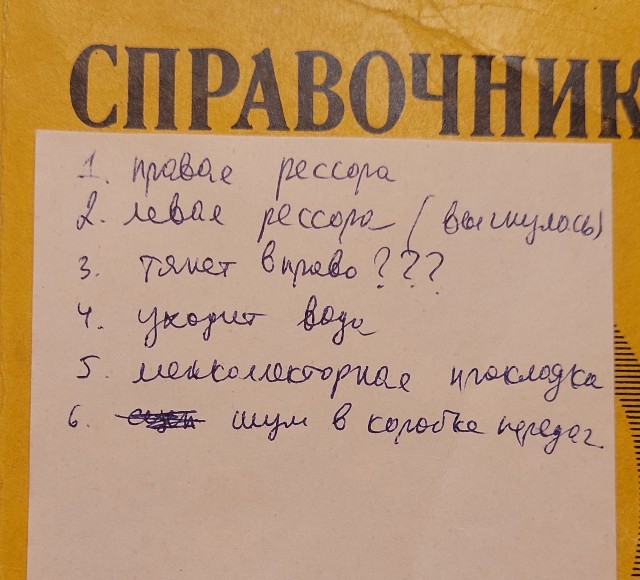 СПРАВОЧНИК
1. правая рессора
2. левая рессора (выгнулась)
3. тянет вправо???
4. уходит вода
5. межколлекторная прокладка
6. шум в коробке передач.